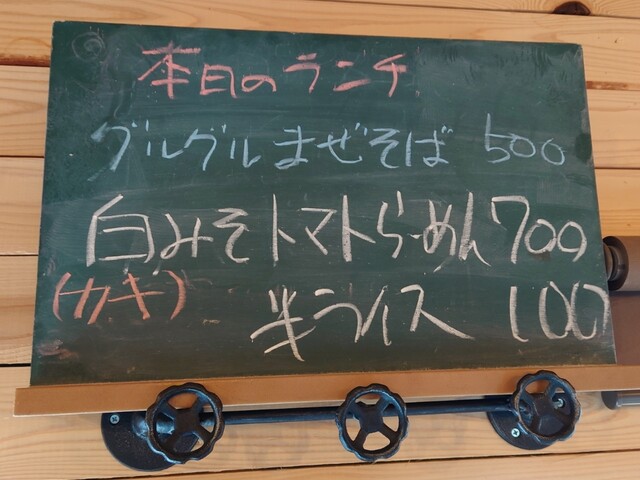 本日のランチ
グルグルまぜそば 500
白みそトマトらーめん 700
(カキ)
半ライス 100